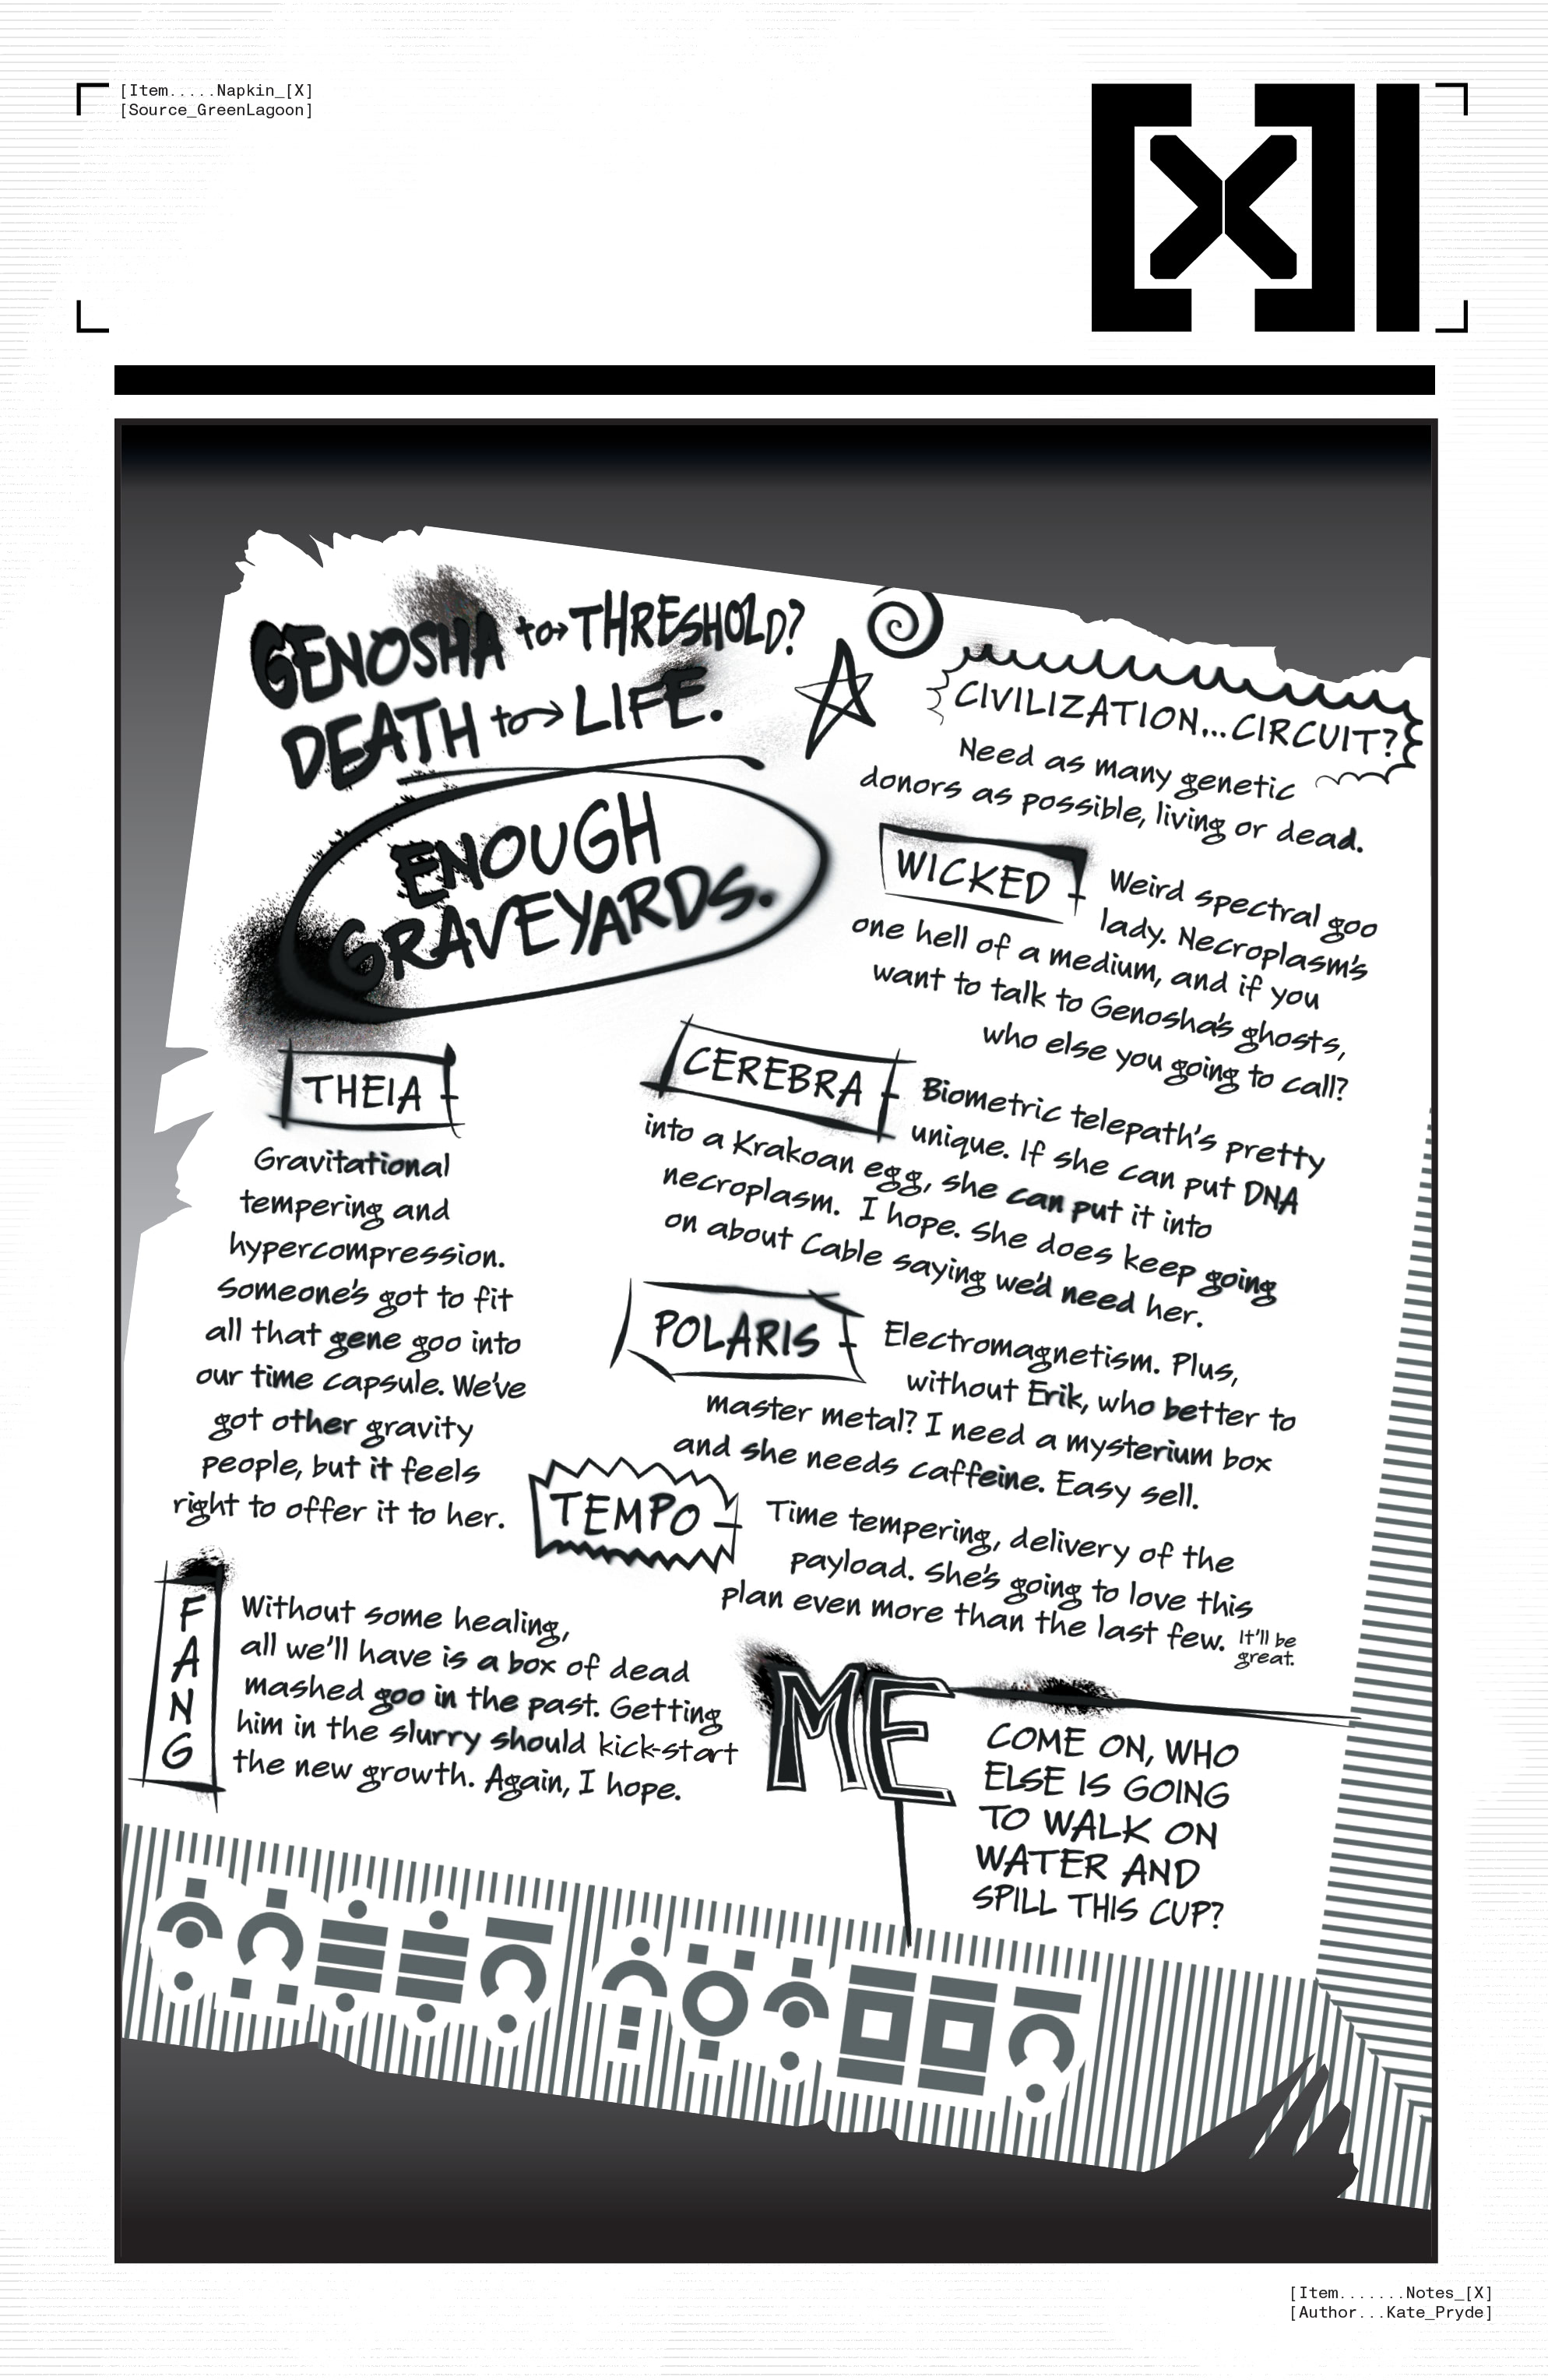 [Item.....Napkin_[X]
[Source_GreenLagoon]
[X]|
GENOSHA to→ THRESHOLD?
DEATH to→ LIFE.
ENOUGH
GRAVEYARDS.
CIVILIZATION...CIRCUIT?
Need as many genetic
donors as possible, living or dead.
WICKED - Weird spectral goo
lady. Necroplasm's
one hell of a medium, and if you
want to talk to Genosha's ghosts,
who else you going to call?
THEIA -
Gravitational
tempering and
hypercompression.
Someone's got to fit
all that gene goo into
our time capsule. We've
got other gravity
people, but it feels
right to offer it to her.
CEREBRA - Biometric telepath's pretty
unique. If she can put DNA
into a Krakoan egg, she can put it into
necroplasm. I hope. She does keep going
on about Cable saying we'd need her.
POLARIS - Electromagnetism. Plus,
without Erik, who better to
master metal? I need a mysterium box
and she needs caffeine. Easy sell.
TEMPO - Time tempering, delivery of the
payload. She's going to love this
plan even more than the last few. It'll be
great.
FANG
Without some healing,
all we'll have is a box of dead
mashed goo in the past. Getting
him in the slurry should kick-start
the new growth. Again, I hope.
ME
COME ON, WHO
ELSE IS GOING
TO WALK ON
WATER AND
SPILL THIS CUP?
[Item.......Notes_[X]
[Author...Kate_Pryde]